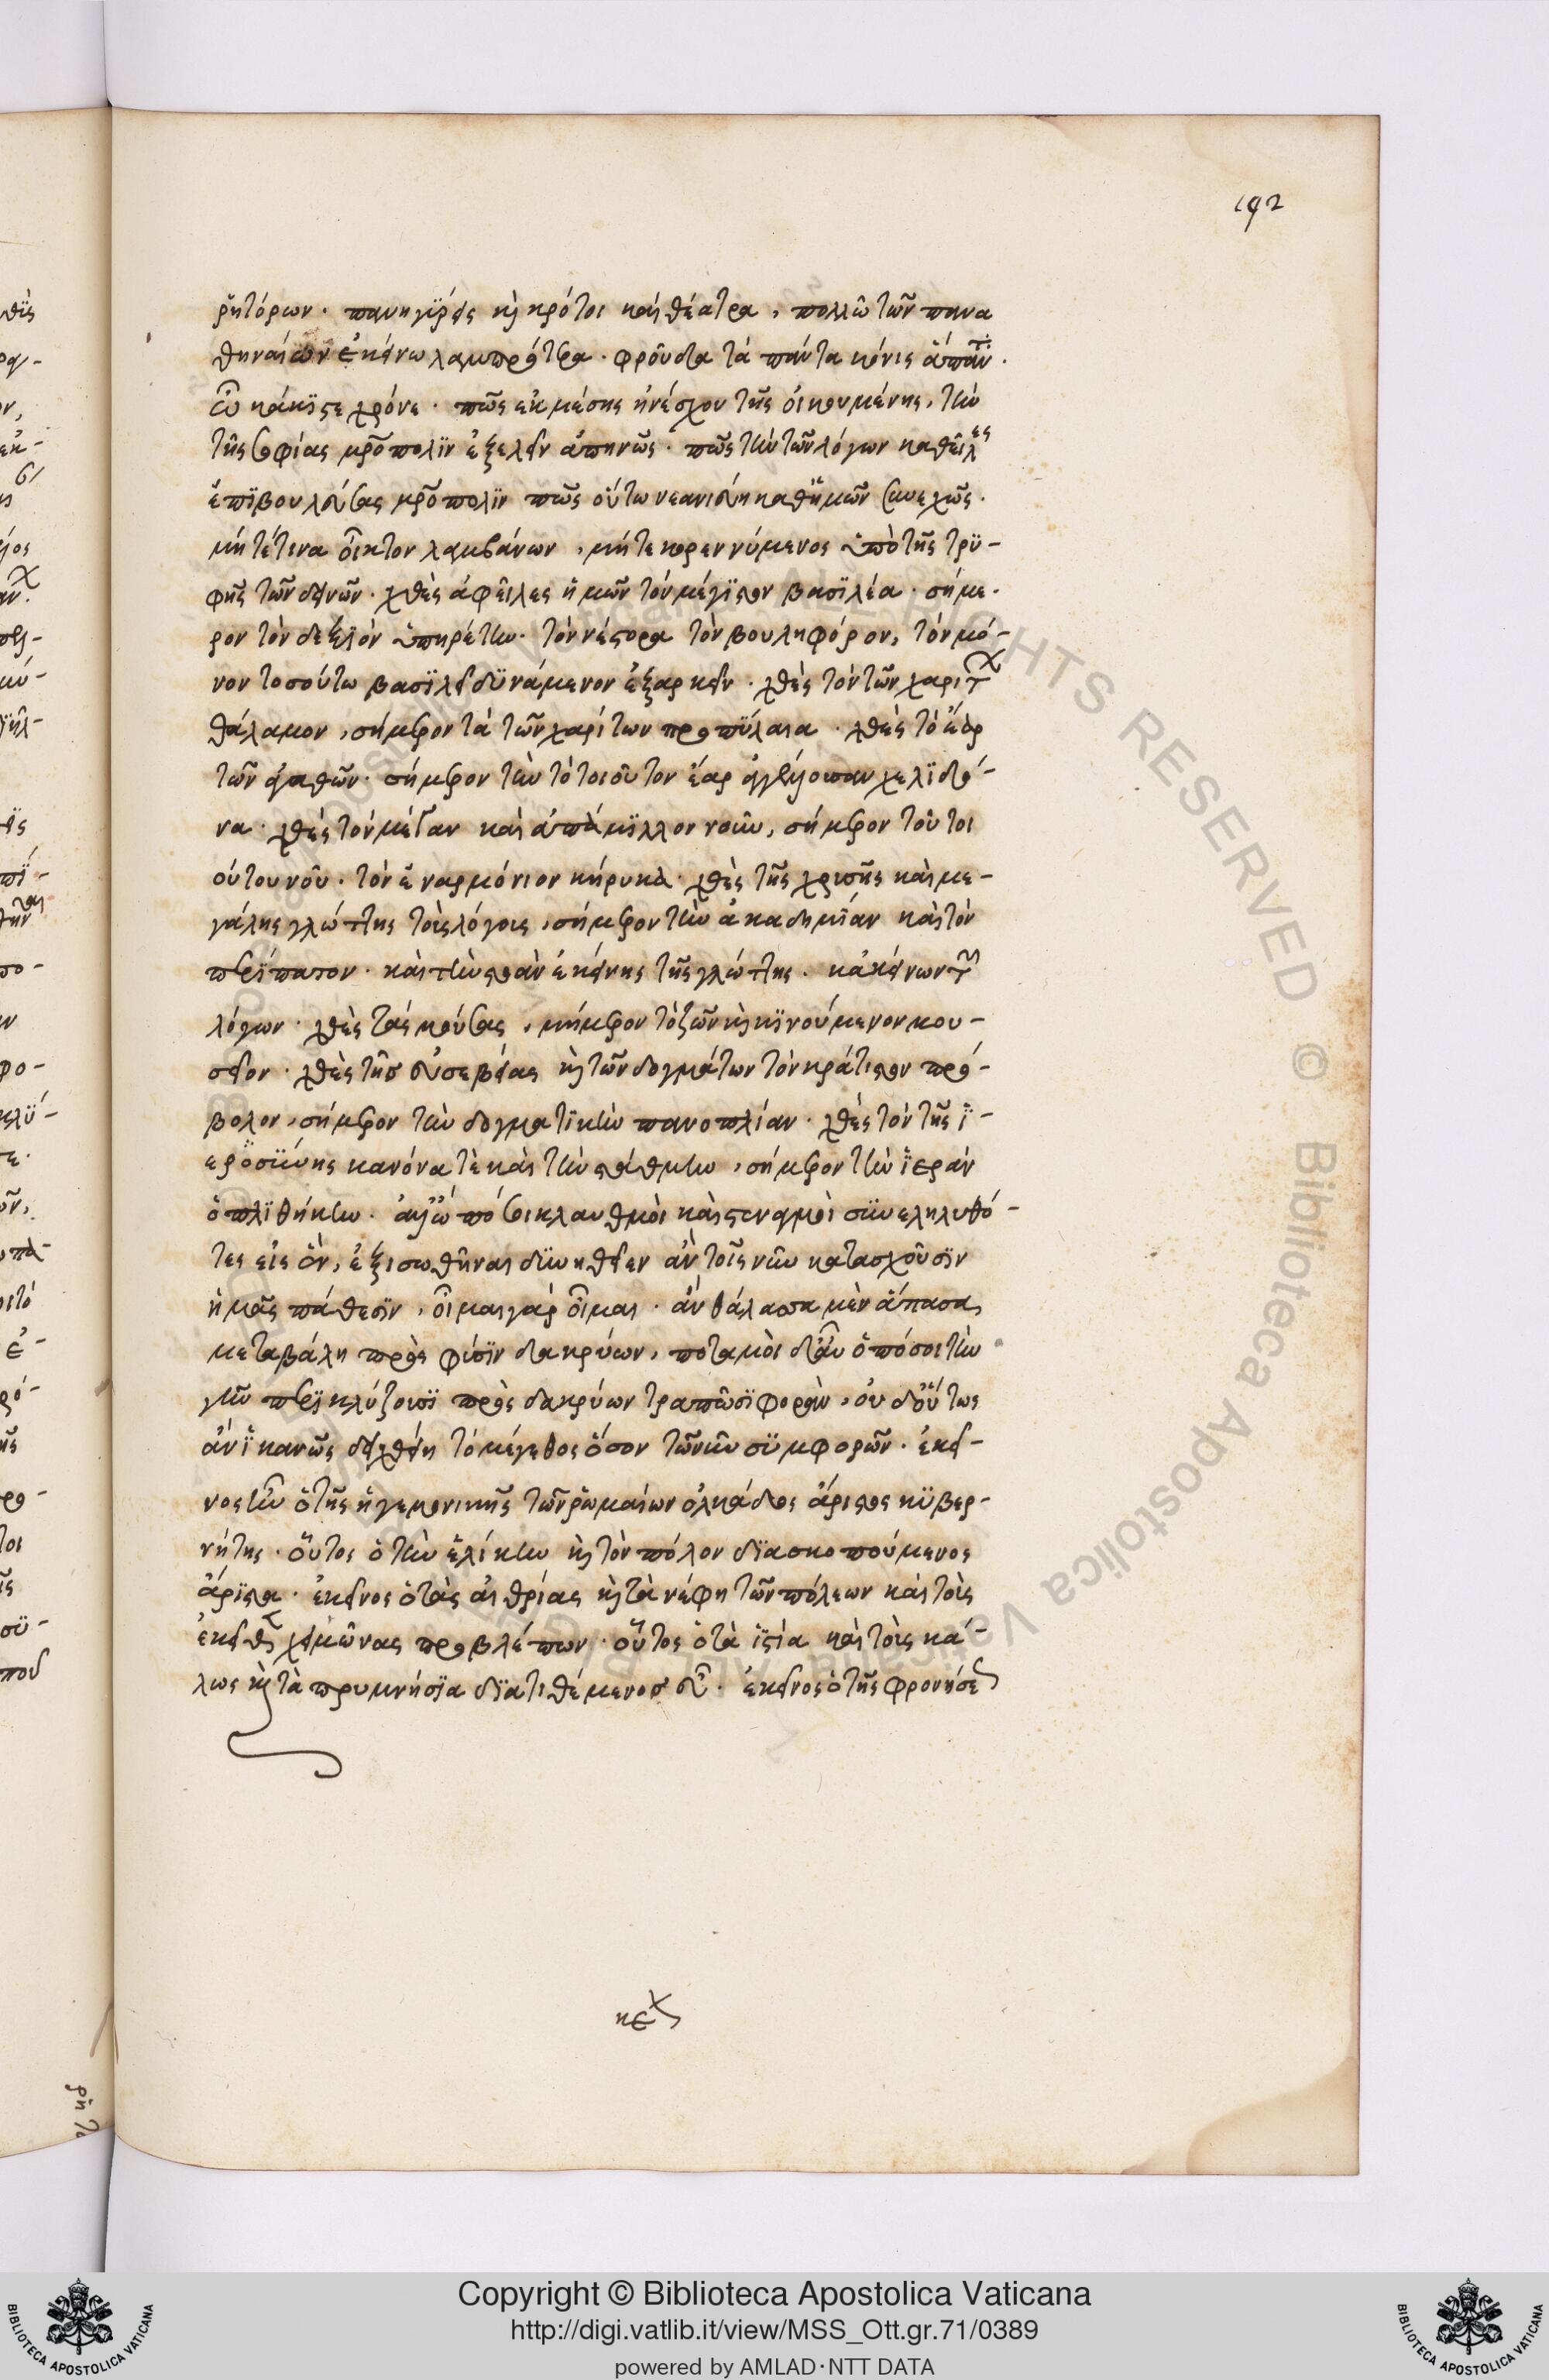 192
ῥητόρων · πανηγύρεις καὶ κρότοι καὶ θέατρα, πολλῶ τῶν πανα
θηναίων ἐκείνω λαμπρότερα · φροῦδα τὰ πάντα κόνις ἅπαντ ·
ὦ κάκιστε χρόνε · πῶς ἐκ μέσης ἠνέσχου τῆς οἰκουμένης, τὴν
τῆς σοφίας μρόπολιν ἐξελεῖν ἀπηνῶς · πῶς τὴν τῶν λόγων καθεῖλες
ἐπιβουλεύσας μρόπολιν πῶς οὕτω νεανιεύη καθ' ἡμῶν συνεχῶς ·
μήτέ τινα οἶκτον λαμβάνων, μήτε κορεννύμενος ὑπὸ τῆς τρυ-
φῆς τῶν δεινῶν · χθὲς ἀφεῖλες ἡμῶν τὸν μέγιστον βασιλέα · σήμε-
ρον τὸν δεξιὸν ὑπηρέτην · τὸν νέστορα τὸν βουληφόρον, τὸν μό-
νον τοσούτω βασιλεῖ δυνάμενον ἐξαρκεῖν · χθὲς τὸν τῶν χαρίτ
θάλαμον, σήμερον τὰ τῶν χαρίτων προπύλαια · χθὲς τὸ ἔαρ
τῶν ἀγαθῶν · σήμερον τὴν τὸ τοιοῦτον ἔαρ ἀγγέλουσαν χελιδό-
να · χθὲς τὸν μέγαν καὶ ἀπάμιλλον νοῦν, σήμερον τοῦ τοι
ούτου νοῦ · τὸν ἐναρμόνιον κήρυκα · χθὲς τῆς χρυσῆς καὶ με-
γάλης γλώττης τοὺς λόγους, σήμερον τὴν ἀκαδημίαν καὶ τὸν
περίπατον · καὶ τὴν στοὰν ἐκείνης τῆς γλώττης · κἀκείνων τῶν
λόγων · χθὲς τὰς μούσας, σήμερον τὸ ζῶν καὶ κινούμενον μου-
σεῖον · χθὲς τῆς εὐσεβείας καὶ τῶν δογμάτων τὸν κράτιστον πρό-
βολον, σήμερον τὴν δογματικὴν πανοπλίαν · χθὲς τὸν τῆς ἱ-
εροσύνης κανόνα τὲ καὶ τὴν στάθμην, σήμερον τὴν ἱερὰν
ὁπλιθήκην · πόσοι κλαυθμοὶ καὶ στεναγμοὶ συνεληλυθό-
τες εἰς ὃν, ἐξισωθῆναι δυνηθεῖεν ἂν τοῖς νῦν κατασχοῦσιν
ἡμᾶς πάθεσιν, οἶμαι γὰρ οἶμαι · ἂν θάλασσα μὲν ἅπασα,
μεταβάλη πρὸς φύσιν δακρύων, ποταμοὶ δ' αὖ ὁπόσοι τὴν
γῆν περικλύζουσι πρὸς δακρύων τραπῶσι φορὰν, οὐδ' οὕτως
ἂν ἱκανῶς δειχθείη τὸ μέγεθος ὅσον τῶν νῦν συμφορῶν · ἐκεῖ-
νος ἦν ὁ τῆς ἡγεμονικῆς τῶν ῥωμαίων ὁλκάδος ἄριστος κυβερ-
νήτης · οὗτος ὁ τὴν ἑλίκην καὶ τὸν πόλον διασκοπούμενος
ἄριστα · ἐκεῖνος ὁ τὰς αἰθρίας καὶ τὰ νέφη τῶν πόλεων καὶ τοὺς
ἐκεῖθ χειμῶνας προβλέπων · οὗτος ὁ τὰ ἱστία καὶ τοὺς κά-
λως καὶ τὰ πρυμνήσια διατιθέμενος εὖ · ἐκεῖνος ὁ τῆς φρονήσε
Copyright © Biblioteca Apostolica Vaticana
http://digi.vatlib.it/view/MSS_Ott.gr.71/0389
powered by AMLAD·NTT DATA
BIBLIOTECA APOSTOLICA VATICANA
BIBLIOTECA APOSTOLICA VATICANA